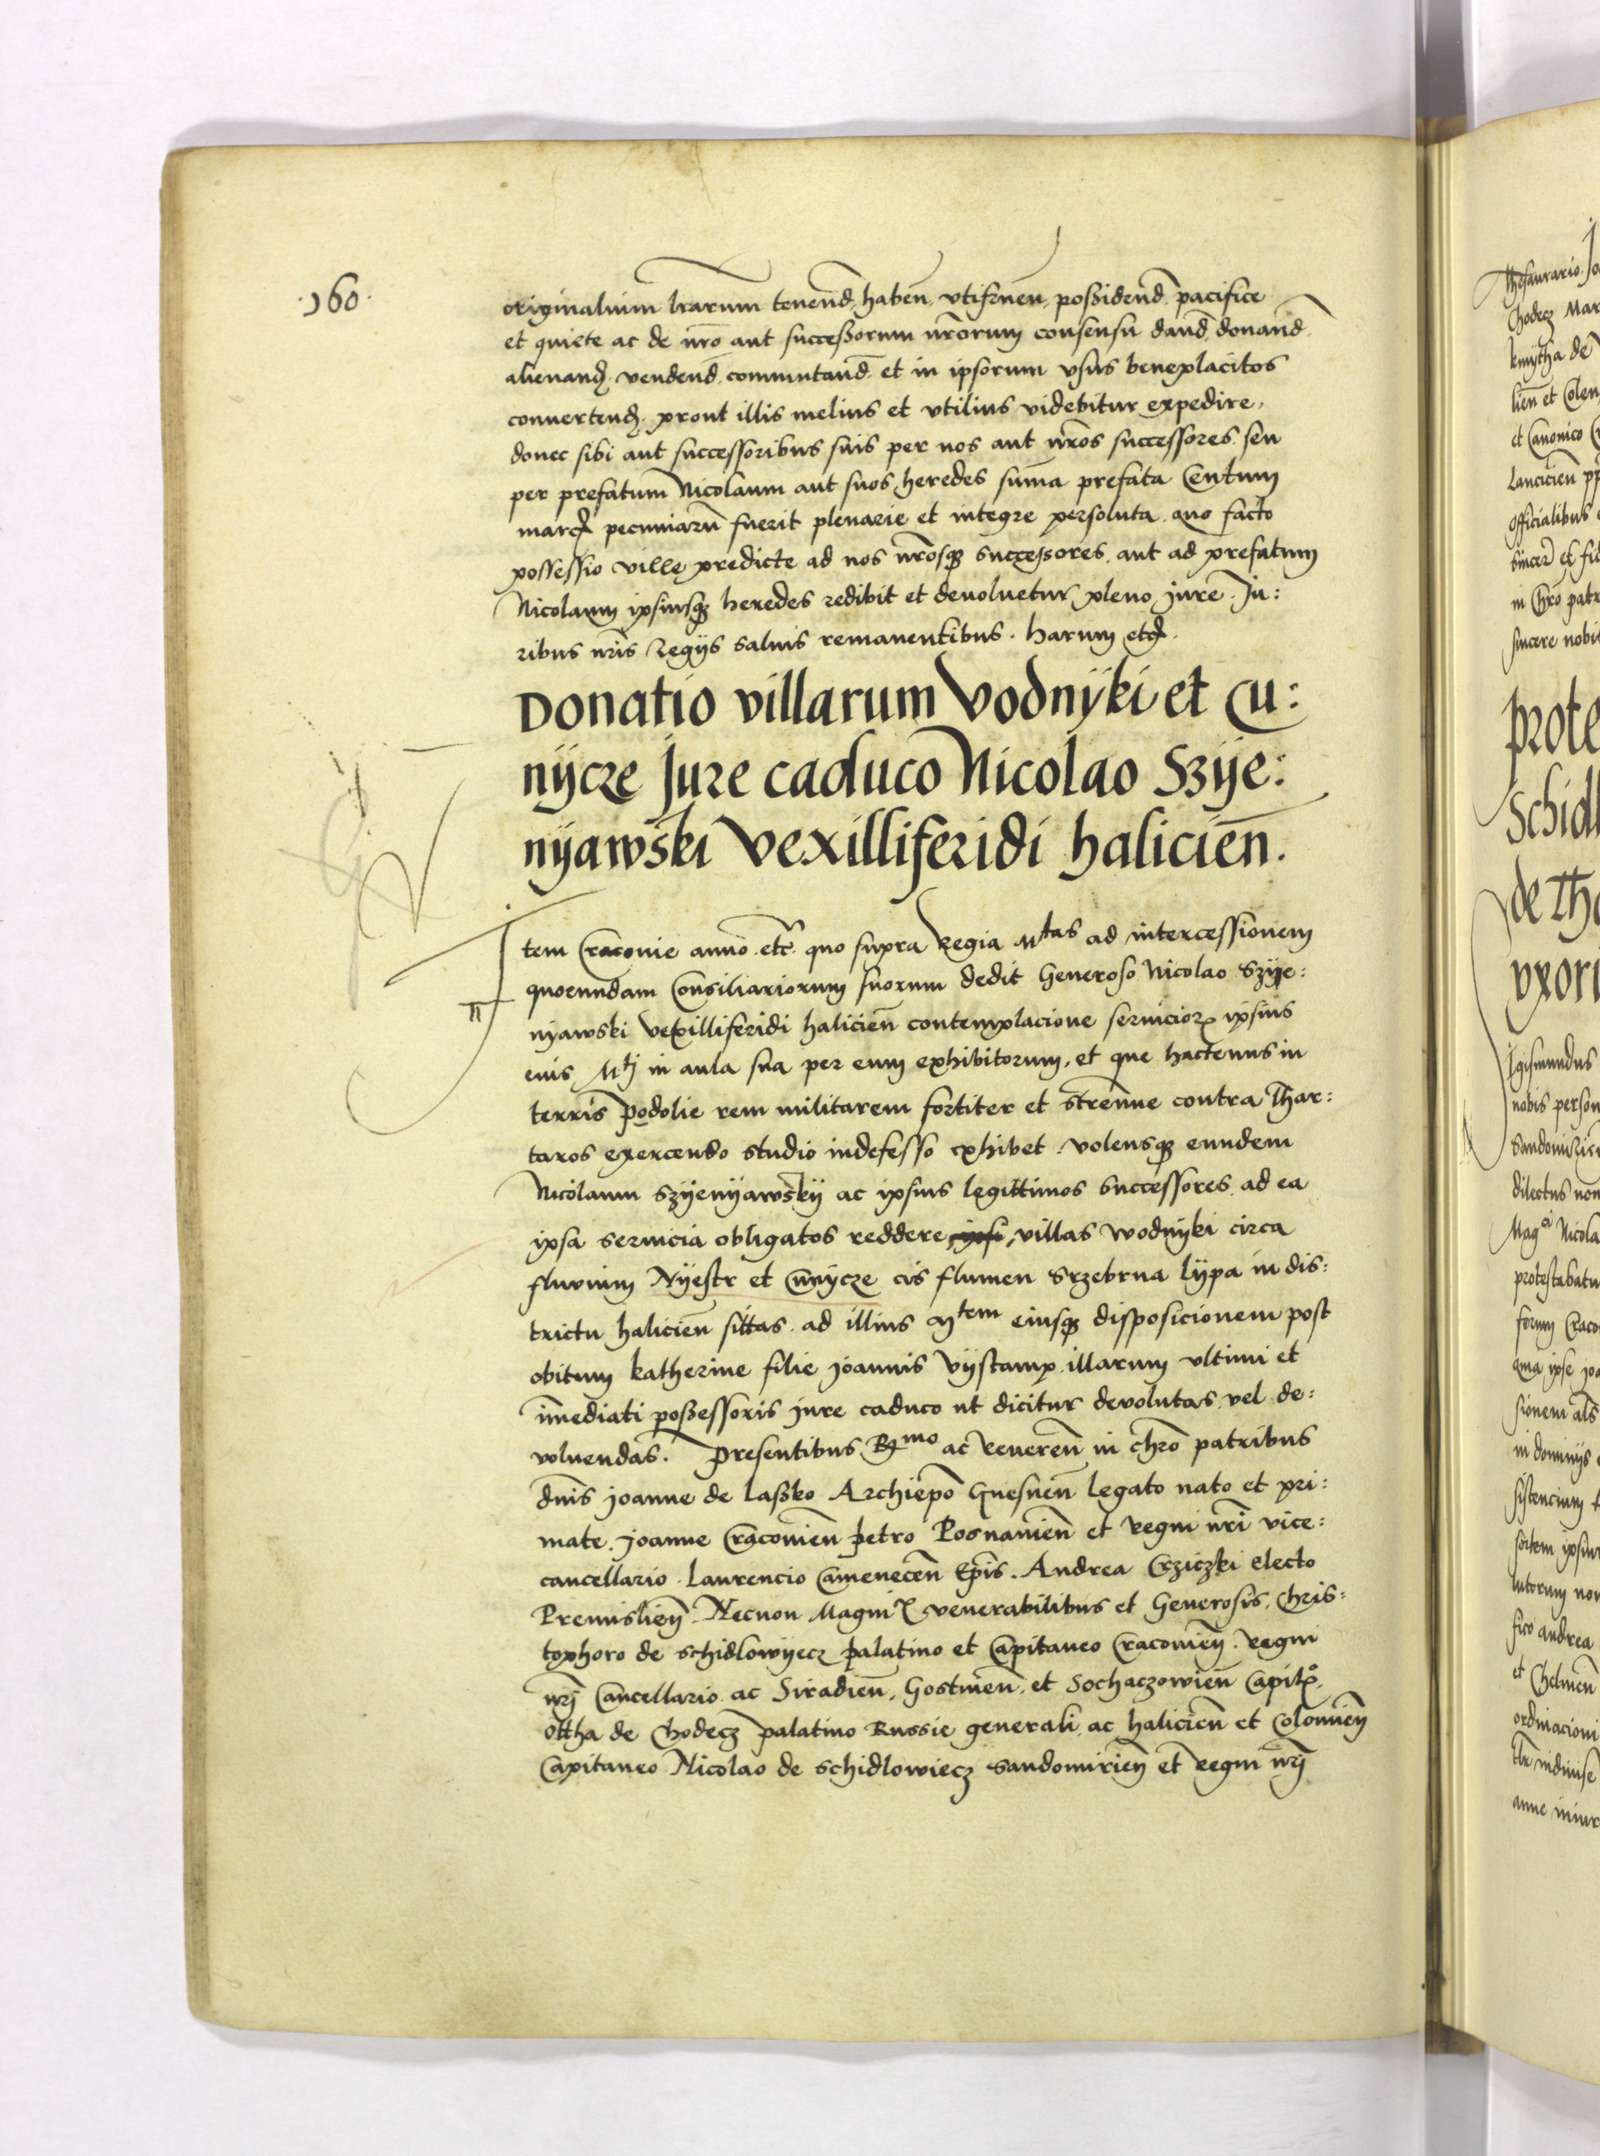 ·160·
originalium lrarum tenend, haben, utifruen, possidend, pacifice
et quiete ac de nro aut successorum nrorum consensu dand, donand
alienand, vendend, commutand, et in ipsorum usus beneplacitos
convertend, prout illis melius et utilius videbitur expedire,
donec sibi aut successoribus suis per nos aut nros successores, seu
per prefatum Nicolaum aut suos heredes summa prefata Centum
marcar pecuniaru fuerit plenarie et integre persoluta, quo facto
possessio ville predicte ad nos nrosq successores, aut ad prefatum
Nicolaum ipsiusq heredes redibit et devolvetur pleno jure. Ju:
ribus nris Regijs salvis remanentibus. Harum etc.
Donatio villarum Vodnijki et Cu:
nijcze Jure caduco Nicolao Szije:
nijawski Vexilliferidi halicien.
Item Craconie anno etc. quo supra Regia Mtas ad intercessionem
quorundam Consiliariorum suorum dedit Generoso Nicolao Szije:
nijawski vexilliferidi halicien contemplacione servicior ipsius
eius Mtj in aula sua per eum exhibitorum, et que hactenus in
terris Podolie rem militarem fortiter et strenue contra Thar:
taros exercendo studio indefesso exhibet. volensq eundem
Nicolaum Szijenijawskij ac ipsius legittimos successores ad ea
ipsa servicia obligatos reddere, ipsi, villas wodnijki circa
fluvium Nijestr et Cunijcze cis flumen Srzebrna lijpa in dis:
trictu halicien sittas, ad illius Mtem eiusq disposicionem post
obitum katherine filie Joannis Vijstamp, illarum ultimi et
immediati possessoris jure caduco ut dicitur devolutas, vel de:
volvendas. Presentibus Rmo ac Reveren in chro patribus
dnis Joanne de Lasko Archiepo Gnesnen legato nato et pri:
mate, Joanne Cracovien Petro Posnanien et Regni nri vice:
cancellario. Laurencio Camenecen Epis. Andrea Crziczki electo
Premislien. Necnon Magnic venerabilibus et Generosis, Chris:
tophoro de schidlowijecz palatino et Capitaneo Cracovien. Regni
nrj Cancellario ac Siradien, Gostinen, et Sochaczowien Capito.
Ottha de Chodecz palatino Russie generali ac halicien et Colomien
Capitaneo Nicolao de schidlowiecz sandomirien et Regni nrj